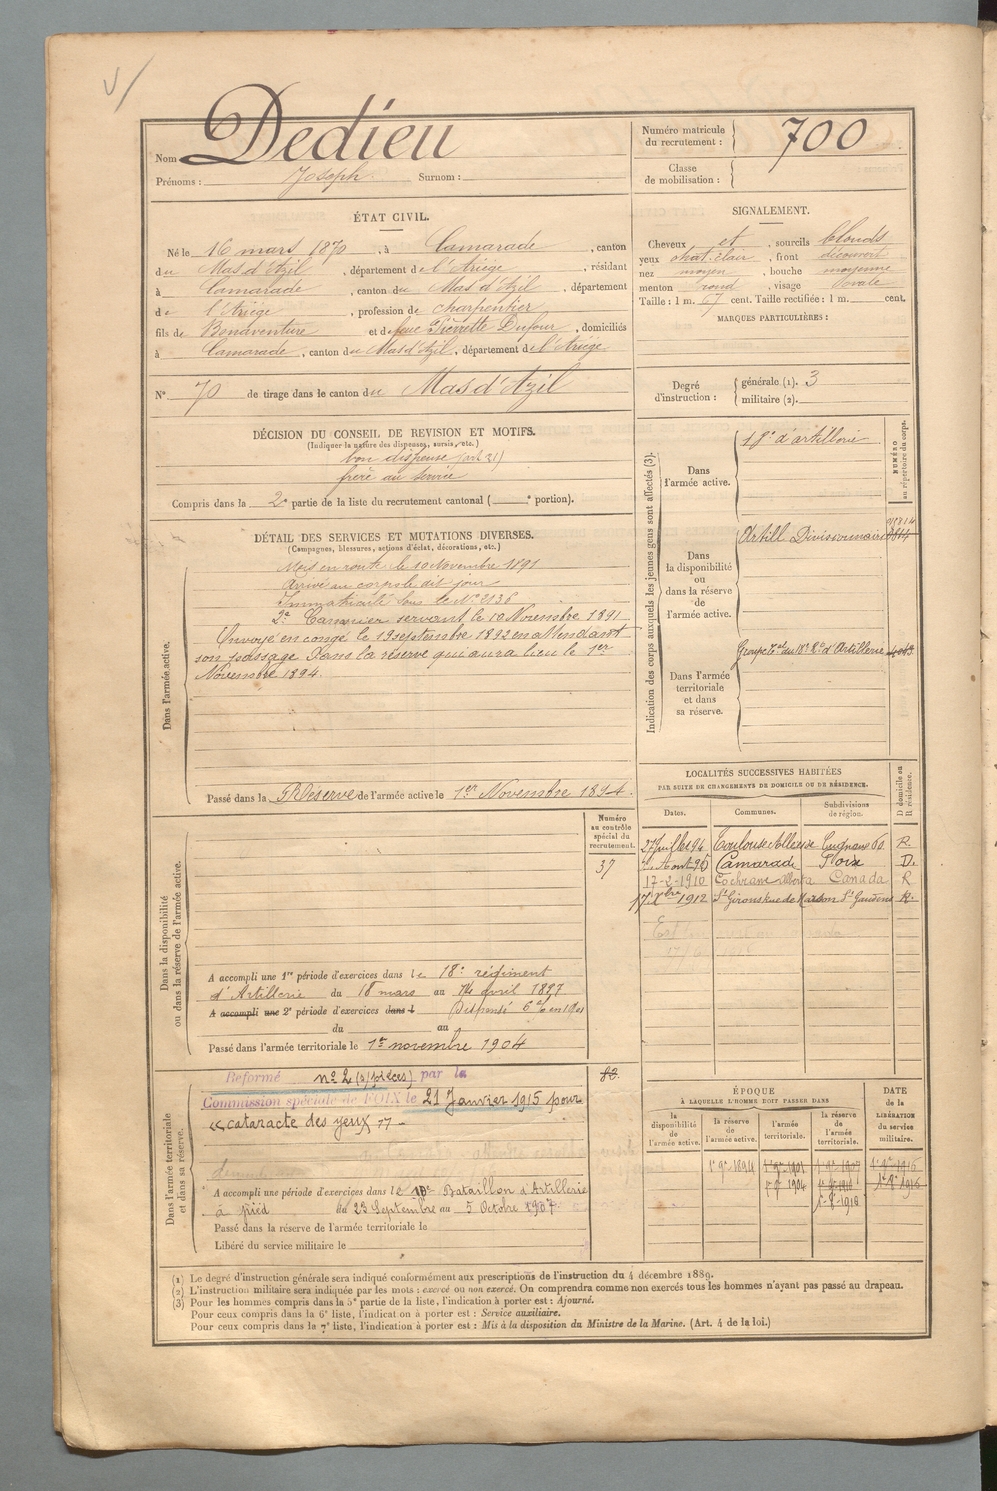 Nom Dedieu
Prénoms : Joseph Surnom :
Numéro matricule du recrutement : 700
Classe de mobilisation :
ÉTAT CIVIL.
Né le 16 mars 1870, à Camarade, canton
du Mas d'Azil, département de l'Ariège, résidant
à Camarade, canton du Mas d'Azil, département
de l'Ariège, profession de charpentier
fils de Bonaventure et de feue Pierrette Dufour, domiciliés
à Camarade, canton du Mas d'Azil, département de l'Ariège
SIGNALEMENT.
Cheveux et, sourcils blonds
yeux chat. clair, front découvert
nez moyen, bouche moyenne
menton rond, visage ovale
Taille : 1 m. 67 cent. Taille rectifiée : 1 m. cent.
MARQUES PARTICULIÈRES :
N° 70 de tirage dans le canton du Mas d'Azil
Degré d'instruction : générale (1). 3
militaire (2).
DÉCISION DU CONSEIL DE REVISION ET MOTIFS.
(Indiquer la nature des dispenses, sursis, etc.)
bon dispensé (art 21)
frère au service
Compris dans la 2e partie de la liste du recrutement cantonal ( e portion).
DÉTAIL DES SERVICES ET MUTATIONS DIVERSES.
(Campagnes, blessures, actions d'éclat, décorations, etc.)
Dans l'armée active.
Mis en route le 10 Novembre 1891
Arrivé au corps le dit jour
Immatriculé sous le N° 2136
2e Canonier servant le 10 Novembre 1891
Envoyé en congé le 19 septembre 1892 en attendant
son passage Dans la réserve qui aura lieu le 1er
Novembre 1894.
Passé dans la Réserve de l'armée active le 1er Novembre 1894.
Indication des corps auxquels les jeunes gens sont affectés (3).
NUMÉRO au répertoire du corps.
Dans l'armée active.
18e d'artillerie
Dans la disponibilité ou dans la réserve de l'armée active.
Artill Divisionnaire
Dans l'armée territoriale et dans sa réserve.
Groupe Tal du 18e R° d'Artillerie
LOCALITÉS SUCCESSIVES HABITÉES
PAR SUITE DE CHANGEMENTS DE DOMICILE OU DE RÉSIDENCE.
Dates. Communes. Subdivisions de région. D domicile ou R résidence.
27 Juillet 94 Toulouse Cugnaux 60 R.
Août 95 Camarade Foix D.
17-2-1910 Cochrane Alberta Canada R
1912 St Girons St Gaudens R.
Numéro au contrôle spécial du recrutement.
37
Dans la disponibilité ou dans la réserve de l'armée active.
A accompli une 1re période d'exercices dans le 18e régiment
d'Artillerie du 18 mars au 14 avril 1897
A accompli une 2e période d'exercices dans l Dispensé
du au
Passé dans l'armée territoriale le 1er novembre 1904
82
Dans l'armée territoriale et dans sa réserve.
Reformé n° 2 (s/pièces) par la
Commission spéciale de FOIX le 21 Janvier 1915 pour
« cataracte des yeux »
A accompli une période d'exercices dans le 18e Bataillon d'Artillerie
à pied du 23 Septembre au 5 Octobre 1907
Passé dans la réserve de l'armée territoriale le
Libéré du service militaire le
ÉPOQUE
À LAQUELLE L'HOMME DOIT PASSER DANS
DATE de la LIBÉRATION du service militaire.
la disponibilité de l'armée active. la réserve de l'armée active. l'armée territoriale. la réserve de l'armée territoriale.
1 9e 1894 1 9e 1901 1 9e 1907 1 9e 1916
1 9e 1904 1 9e 1910 1 9e 1916
1 9e 1916
(1) Le degré d'instruction générale sera indiqué conformément aux prescriptions de l'instruction du 4 décembre 1889.
(2) L'instruction militaire sera indiquée par les mots : exercé ou non exercé. On comprendra comme non exercés tous les hommes n'ayant pas passé au drapeau.
(3) Pour les hommes compris dans la 5e partie de la liste, l'indication à porter est : Ajourné.
Pour ceux compris dans la 6e liste, l'indication à porter est : Service auxiliaire.
Pour ceux compris dans la 7e liste, l'indication à porter est : Mis à la disposition du Ministre de la Marine. (Art. 4 de la loi.)